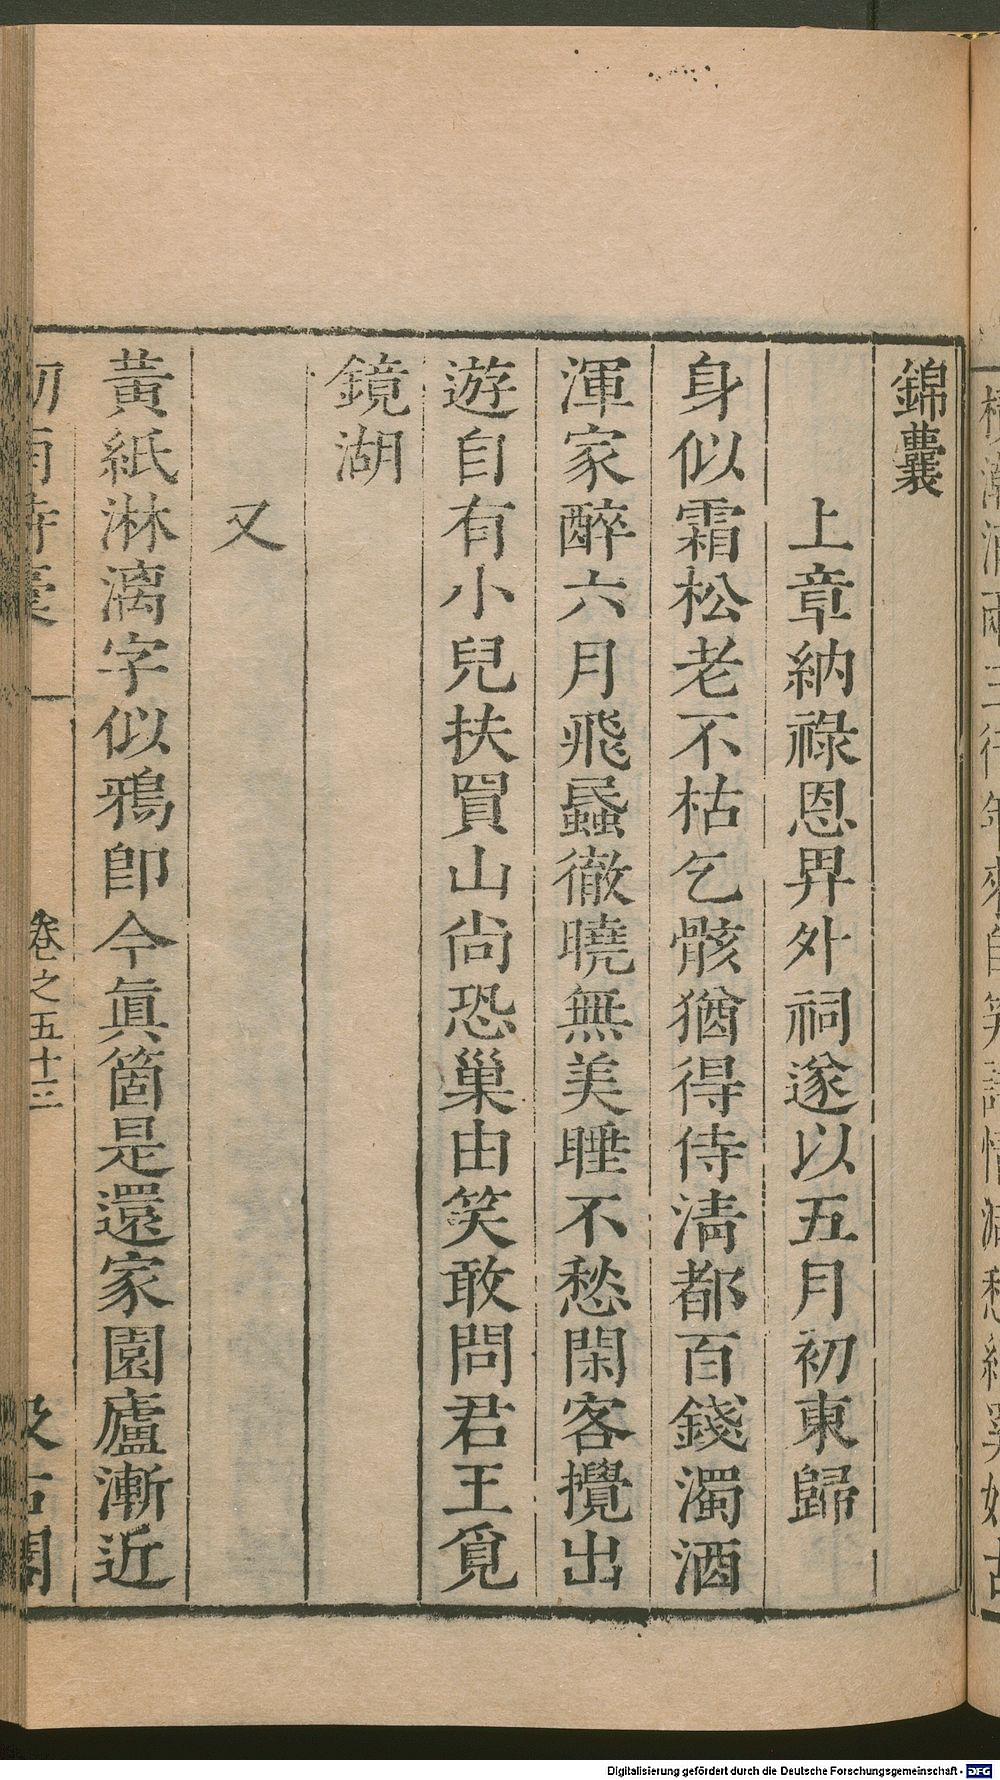 錦囊
上章納祿恩畀外祠遂以五月初東歸
身似霜松老不枯乞骸猶得侍淸都百錢濁酒
渾家醉六月飛蟁徹曉無美睡不愁閑客攪出
遊自有小兒扶買山尙恐巢由笑敢問君王覓
鏡湖
又
黃紙淋漓字似鴉卽今眞箇是還家園廬漸近
卷之五十三
Digitalisierung gefördert durch die Deutsche Forschungsgemeinschaft - DFG